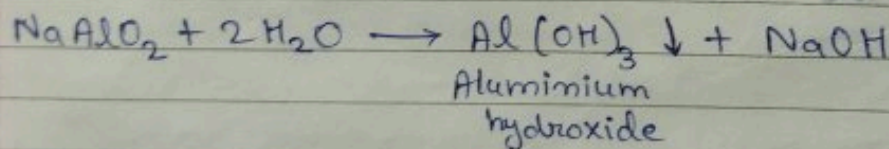 NaAlO₂ + 2H₂O ⟶ Al(OH)₃ ↓ + NaOH
Aluminium
hydroxide